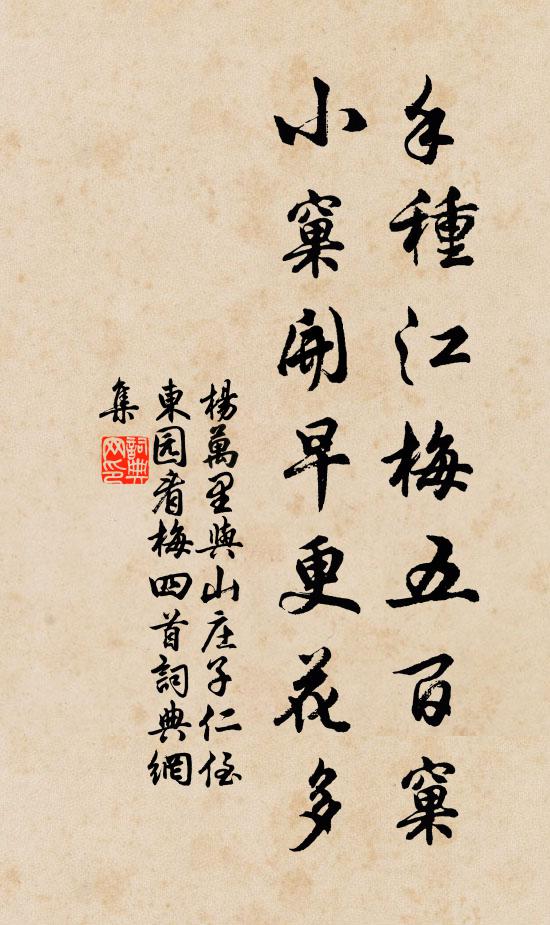 手種江梅五百窠
小窠開早更花多
楊萬里與山庄子仁侄
東园看梅四首詞典網
集
詞典网印